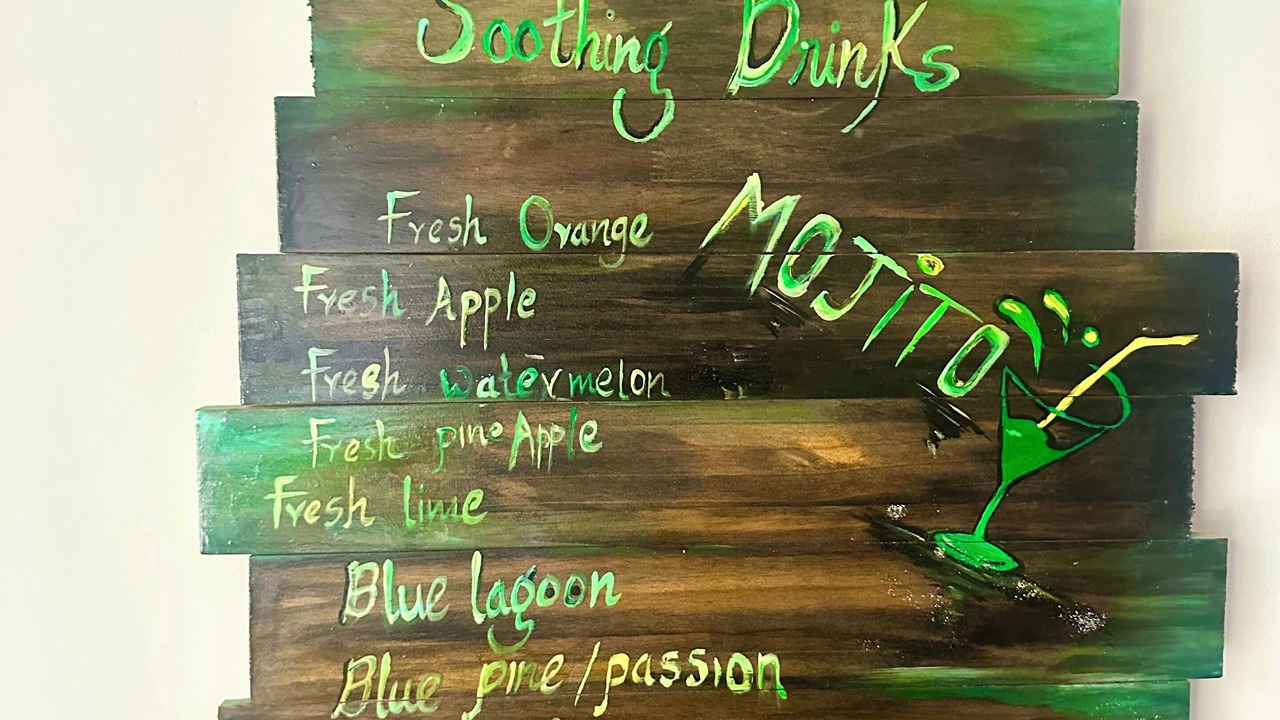 Soothing Drinks
Fresh Orange
MOJiTO
Fresh Apple
Fresh watermelon
Fresh pineApple
Fresh lime
Blue lagoon
Blue pine/passion